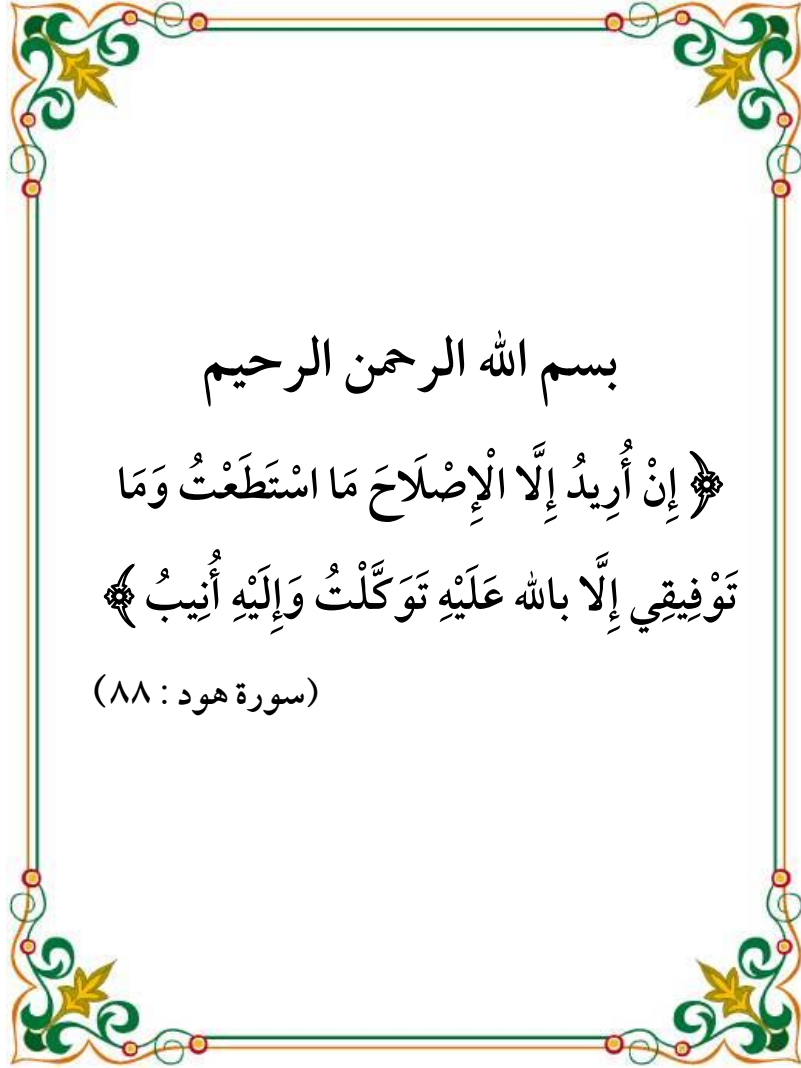 بسم الله الرحمن الرحيم
﴿ إِنْ أُرِيدُ إِلَّا الْإِصْلَاحَ مَا اسْتَطَعْتُ وَمَا
تَوْفِيقِي إِلَّا بالله عَلَيْهِ تَوَكَّلْتُ وَإِلَيْهِ أُنِيبُ ﴾
(سورة هود : ٨٨)